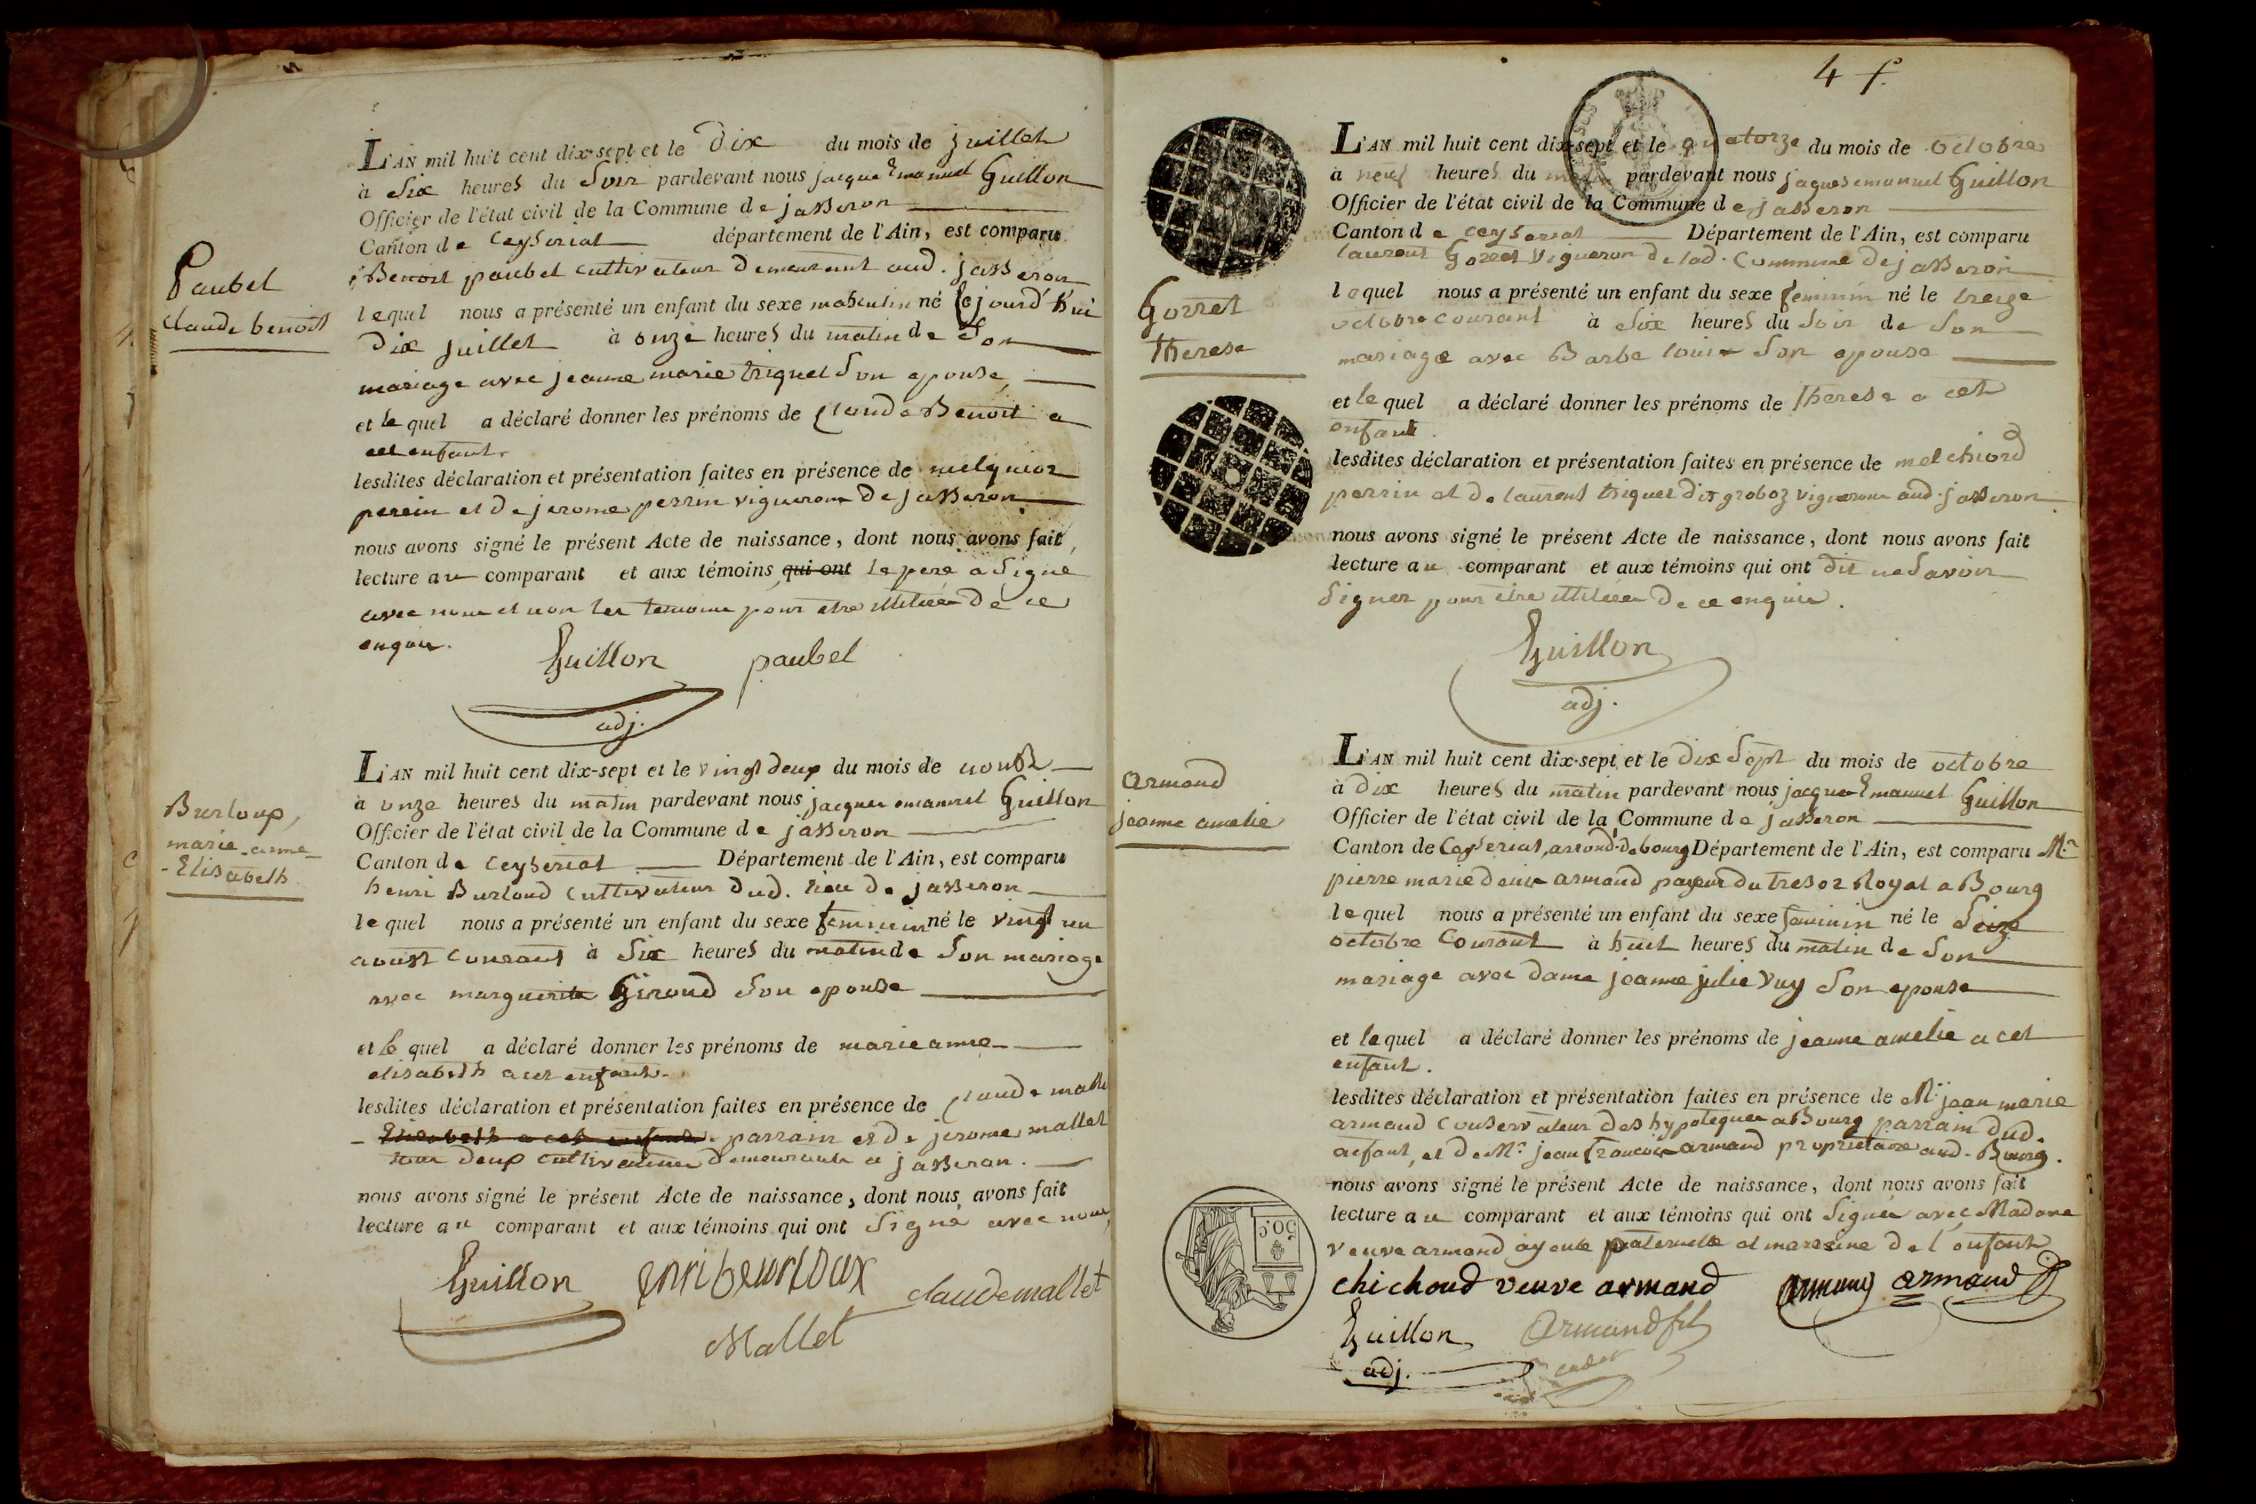 L'AN mil huit cent dix-sept et le Dix du mois de juillet
à Six heures du Soir pardevant nous jacque Emanuel Guillon
Officier de l'état civil de la Commune de jasseron
Canton de Ceyseriat département de l'Ain, est comparu
Benoit paubel cultivateur demeurant aud. jasseron
Paubel
Claude benoit
lequel nous a présenté un enfant du sexe masculin né Cejourd'hui
Dix juillet à onze heures du matin de Son
mariage avec jeanne marie triquet Son epouse,
et le quel a déclaré donner les prénoms de Claude Benoit a
cet enfant.
lesdites déclaration et présentation faites en présence de melquior
perrin et De jerome perrin vignerons De jasseron
nous avons signé le présent Acte de naissance, dont nous avons fait
lecture au comparant et aux témoins qui ont le pere a Signé
avec nous et non les temoins pour etre illiteres De ce
enquis.
Guillon paubel
adj.
L'AN mil huit cent dix-sept et le vingt deux du mois de aoust
à onze heures du matin pardevant nous jacques emanuel Guillon
Officier de l'état civil de la Commune de jasseron
Canton de Ceyseriat Département de l'Ain, est comparu
henri Burloud cultivateur dud. lieu de jasseron
Burloup,
marie-anne
-Elisabeth
lequel nous a présenté un enfant du sexe feminin né le vingt un
aoust courant à Six heures du matin de Son mariage
avec marguerite Giroud Son epouse
et le quel a déclaré donner les prénoms de marie anne
elisabeth a cet enfant.
lesdites déclaration et présentation faites en présence de Claude mallet
Elisabeth a cet enfant parrain et De jerome mallet
tous deux cultivateurs demeurants a jasseron.
nous avons signé le présent Acte de naissance, dont nous avons fait
lecture au comparant et aux témoins qui ont Signé avec nous
Guillon enri beurloux claude mallet
Mallet
4 f.
L'AN mil huit cent dix-sept et le quatorze du mois de octobre
à neuf heures du matin pardevant nous jaques emanuel Guillon
Officier de l'état civil de la Commune de jasseron
Canton de Ceyseriat Département de l'Ain, est comparu
laurent Gorret Vigneron de lad. Commune De jasseron
Gorret
therese
lequel nous a présenté un enfant du sexe feminin né le treize
octobre courant à Six heures du Soir de Son
mariage avec Barbe louise Son epouse
et le quel a déclaré donner les prénoms de therese a cet
enfant.
lesdites déclaration et présentation faites en présence de melchiord
perrin et De laurent triquet dit groboz vignerons aud. jasseron
nous avons signé le présent Acte de naissance, dont nous avons fait
lecture au comparant et aux témoins qui ont dit ne Savoir
Signer pour être illiteres De ce enquis.
Guillon
adj.
L'AN mil huit cent dix-sept et le Dix Sept du mois de octobre
à Dix heures du matin pardevant nous jacque Emanuel Guillon
Officier de l'état civil de la Commune de jasseron
Canton de Ceyseriat, arrond. de bourg Département de l'Ain, est comparu Mr
pierre marie denis armand payeur du tresor Royal a Bourg
armand
jeanne amelie
lequel nous a présenté un enfant du sexe feminin né le Seize
octobre Courant à huit heures du matin de Son
mariage avec dame jeanne julie Vuy Son epouse
et lequel a déclaré donner les prénoms de jeanne amelie a cet
enfant.
lesdites déclaration et présentation faites en présence de Mr jean marie
armand Conservateur des hypoteques a Bourg parrain dud.
enfant, et De Mr jean francois armand propriétaire aud. Bourg.
nous avons signé le présent Acte de naissance, dont nous avons fait
lecture au comparant et aux témoins qui ont Signés avec Madame
veuve armand ayeule paternelle et marraine de l'enfant
50.C
chichoud veuve armand armand armand
Guillon Armand fils
adj. cadet